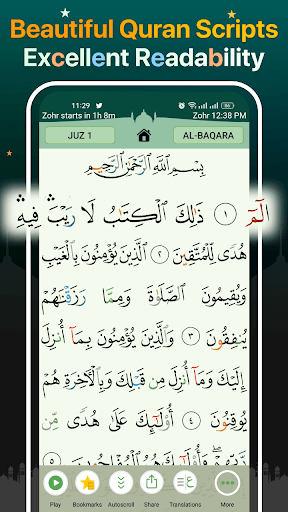 Beautiful Quran Scripts
Excellent Readability
11:29
Zohr starts in 1h 8m
Zohr 12:38 PM
JUZ 1
AL-BAQARA
بِسْمِ اللَّهِ الرَّحْمَٰنِ الرَّحِيمِ
الٓمٓ ۝١ ذَٰلِكَ الْكِتَابُ لَا رَيْبَ ۛ فِيهِ ۛ
هُدًى لِّلْمُتَّقِينَ ۝٢ الَّذِينَ يُؤْمِنُونَ بِالْغَيْبِ
وَيُقِيمُونَ الصَّلَاةَ وَمِمَّا رَزَقْنَاهُمْ
يُنفِقُونَ ۝٣ وَالَّذِينَ يُؤْمِنُونَ بِمَا أُنزِلَ
إِلَيْكَ وَمَا أُنزِلَ مِن قَبْلِكَ وَبِالْآخِرَةِ هُمْ
يُوقِنُونَ ۝٤ أُولَٰئِكَ عَلَىٰ هُدًى مِّن
رَّبِّهِمْ ۖ وَأُولَٰئِكَ هُمُ الْمُفْلِحُونَ ۝٥
Play
Bookmarks
Autoscroll
Share
Translations
More